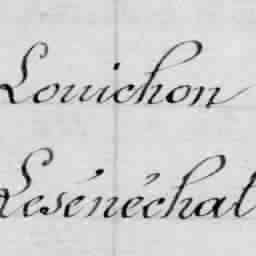 Louichon
Lesénéchal